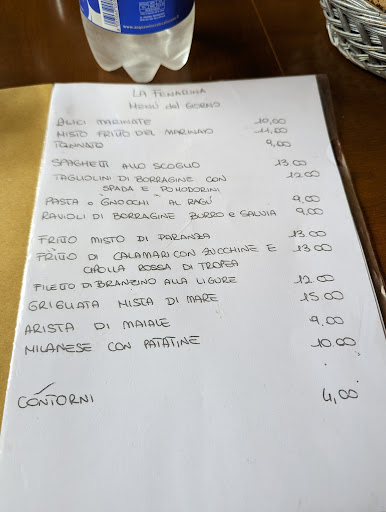 LA FENARINA
MENÙ del GIORNO
ALICI MARINATE 10,00
MISTO FRITTO DEL MARINAIO 11,00
TONNATO 9,00
SPAGHETTI ALLO SCOGLIO 13.00
TAGLIOLINI DI BORRAGINE CON 12.00
SPADA E POMODORINI
PASTA o GNOCCHI AL RAGÙ 9,00
RAVIOLI DI BORRAGINE BURRO e SALVIA 9,00
FRITTO MISTO DI PARANZA 13.00
FRITTO DI CALAMARI CON ZUCCHINE E 13.00
CIPOLLA ROSSA DI TROPEA
FILETTO DI BRANZINO ALLA LIGURE 12.00
GRIGLIATA MISTA DI MARE 15.00
ARISTA DI MAIALE 9.00
MILANESE CON PATATINE 10.00
CONTORNI 4,00